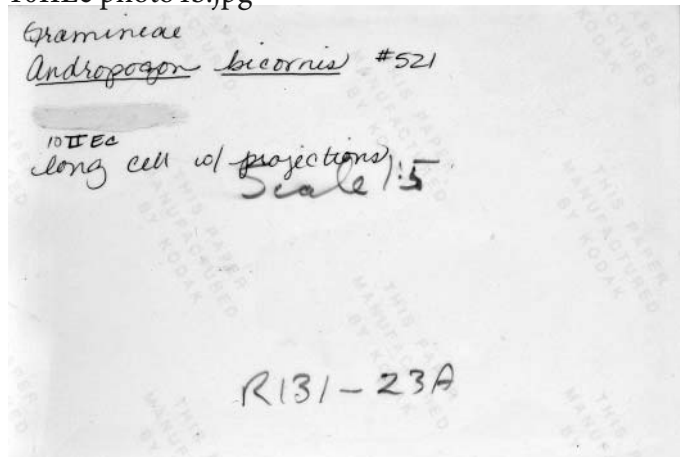 10IIEc photo IB.jpg
Gramineae
Andropogon bicornis #521
10IIEc
long cell w/ projections
Scale 1:5
R131-23A
THIS PAPER
MANUFACTURED
BY KODAK